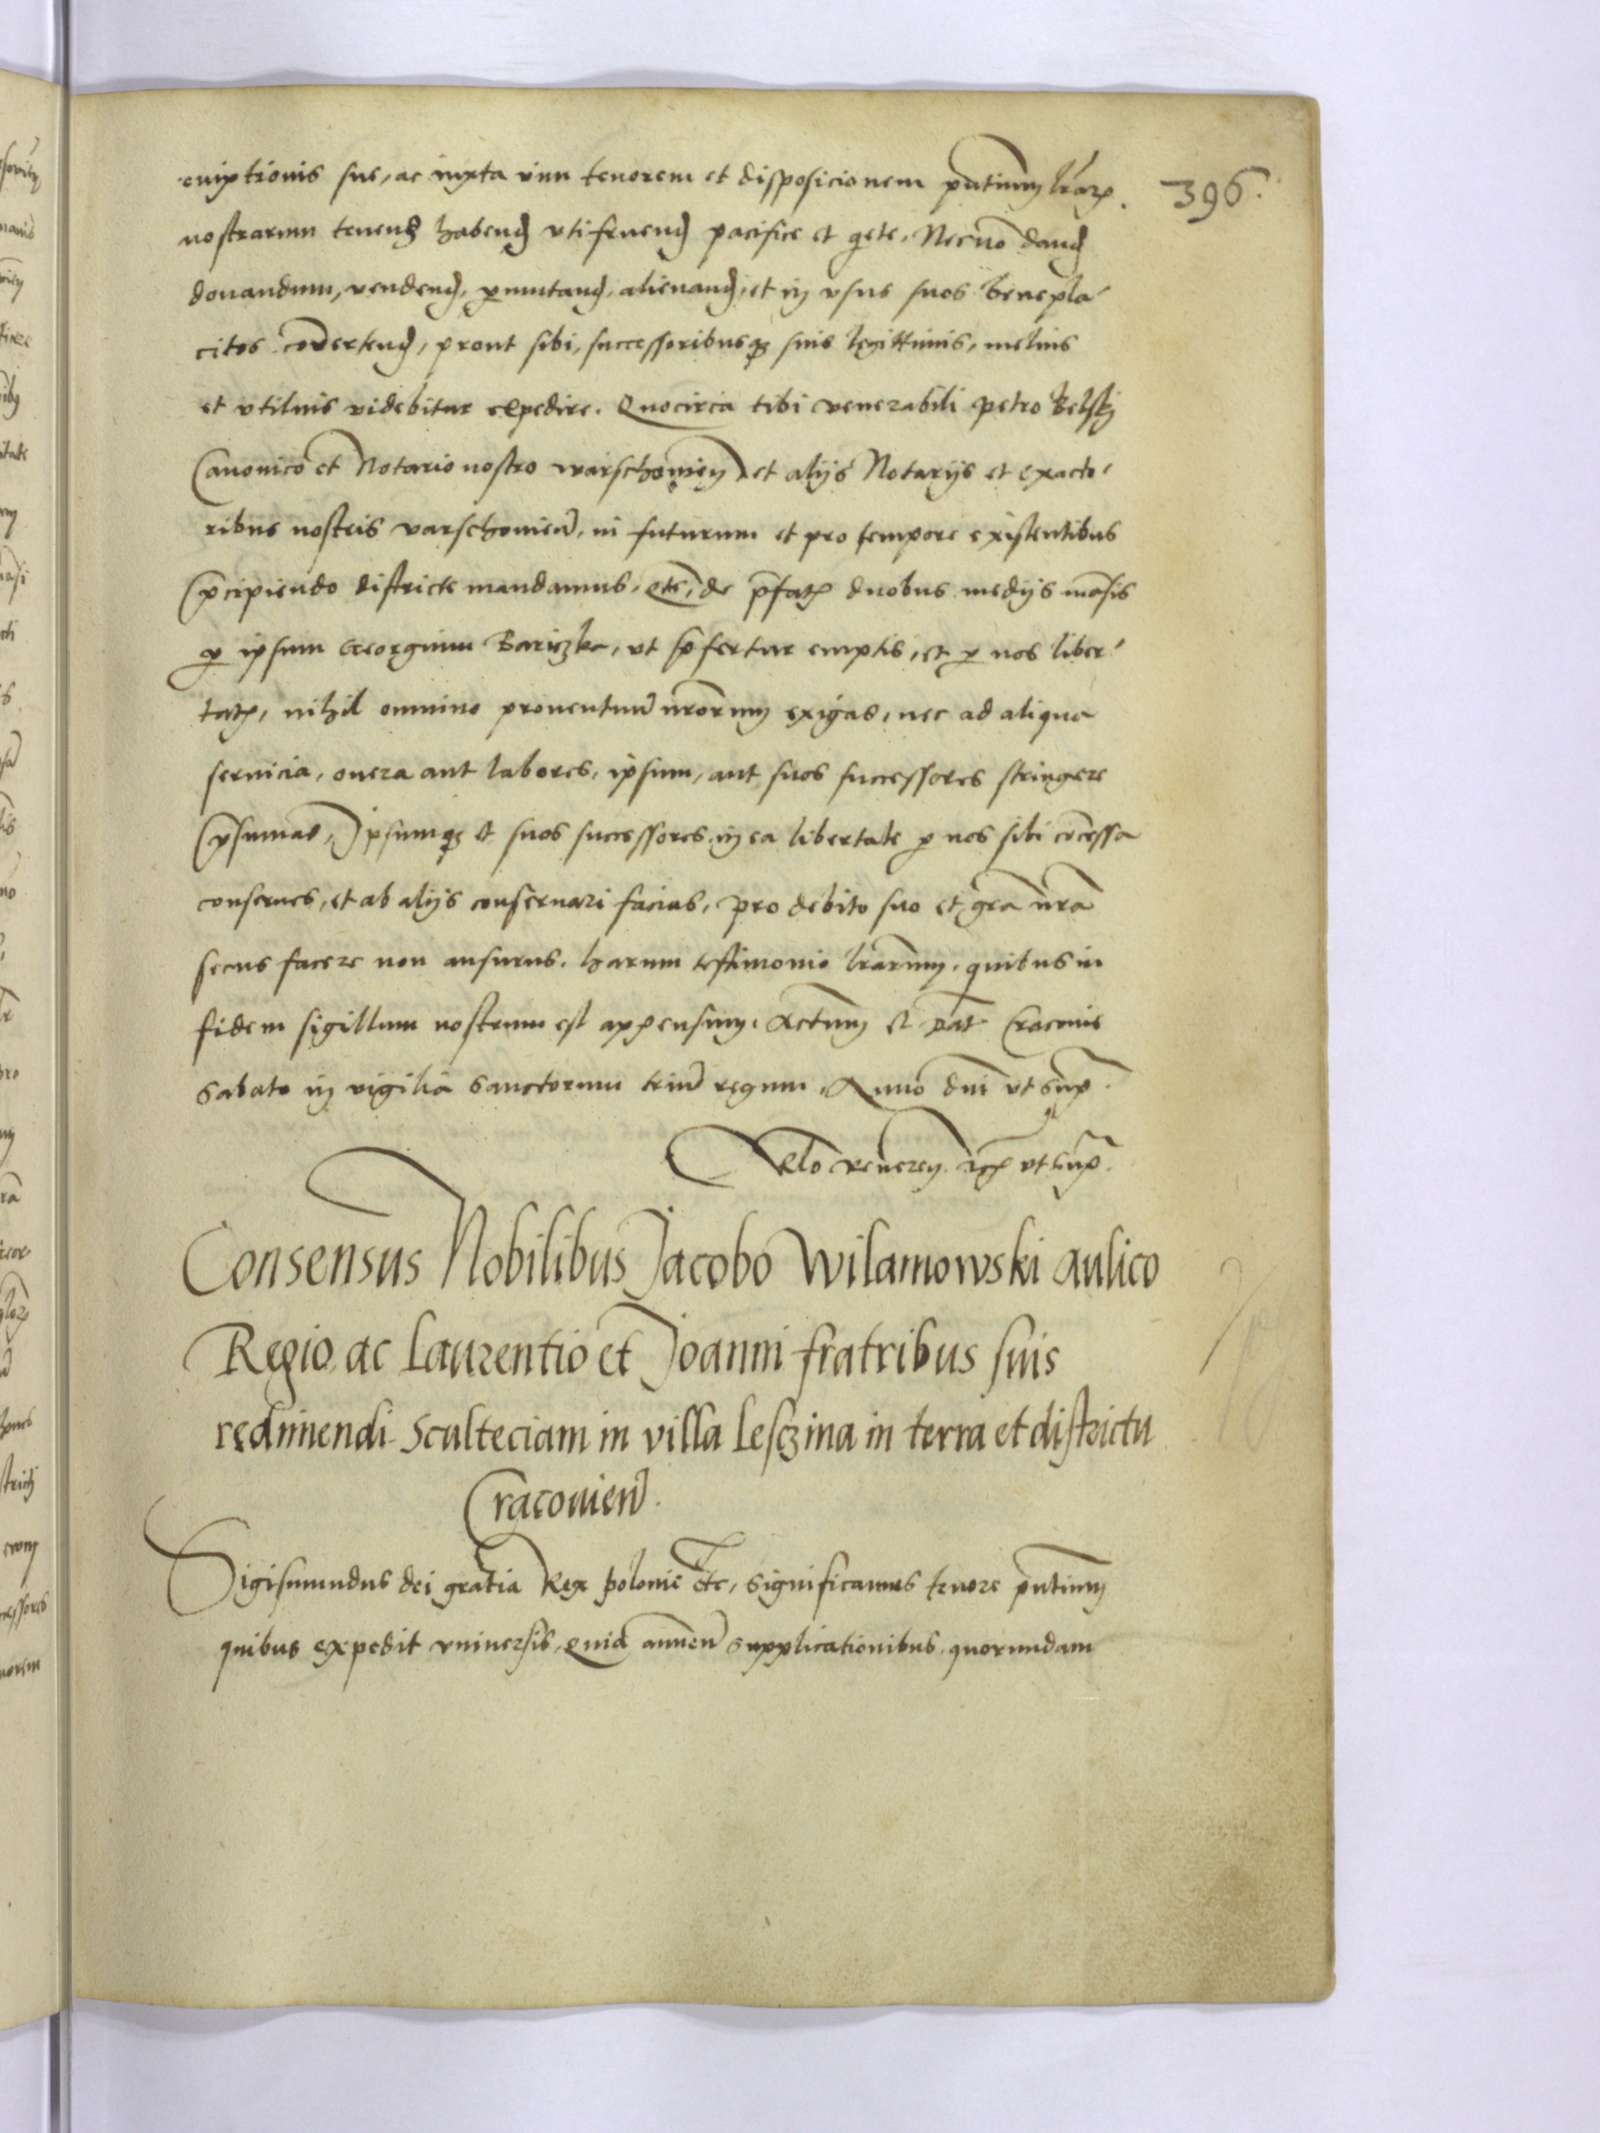 396.
emptionis sue, ac iuxta vim tenorem et disposicionem pntium lrarꝫ
nostrarum tenend habend vtifruend pacifice et qete, Necnō dand
donandum, vendend, ꝑmutand, alienand, et in vsus suos benepla
citos cōvertend, prout sibi, successoribusqꝫ suis legittimis, melius
et vtilius videbitur expedire. Quocirca tibi venerabili Petro Belskj
Canonico et Notario nostro warschowien̄ et alijs Notarijs et exacto
ribus nostris varschowien̄, in futurum et pro tempore existentibus
p̄cipiendo districte mandamus, qte, de p̄fatꝫ duobus medijs māsis
ꝑ ipsum Georgium Bariczka, ut p̄fertur emptis, et ꝑ nos liber
tatꝫ, nihil omnino prouentuū nrōrum exigas, nec ad aliqua
seruicia, onera aut labores, ipsum, aut suos successores stringere
p̄sumas, Ipsumqꝫ et suos successores in ea libertate ꝑ nos sibi cōcessa
conserues, et ab alijs conseruari facias, pro debito suo et grā nrā
secus facere non ausurus. harum testimonio lrarum, quibus in
fidem sigillum nostrum est appensum. Actum et Dat Cracouie
Sabato in vigilia Sanctorum triū regum, Anno dnī vt sup̄.
Rlō veneren. rꝫ vt sup̄.
Consensus Nobilibus Jacobo Wilamowski aulico
Regio, ac Laurentio et Joanni fratribus suis
redimendi Scultetiam in villa Lesczina in terra et districtu
Cracouien̄.
Sigismundus dei gratia Rex Polonie Etc, significamus tenore pn̄tium
quibus expedit vniuersis, Quia annuen̄ supplicationibus quorundam